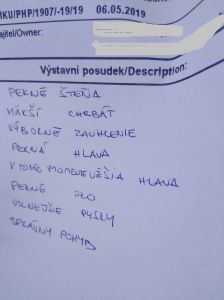 MKU/PHP/1907/-19/19 06.05.2019
ajitel/Owner:
Výstavní posudek/Description:
PEKNÉ ŠTEŇA
MÄKŠÍ CHRBÁT
VÝBORNÉ ZAUHLENIE
PEKNÁ HLAVA
V TOMTO MOMENTE VÄČŠIA HLAVA
PEKNÉ OKO
VOLNEJŠIE PYSKY
SPRÁVNY POHYB